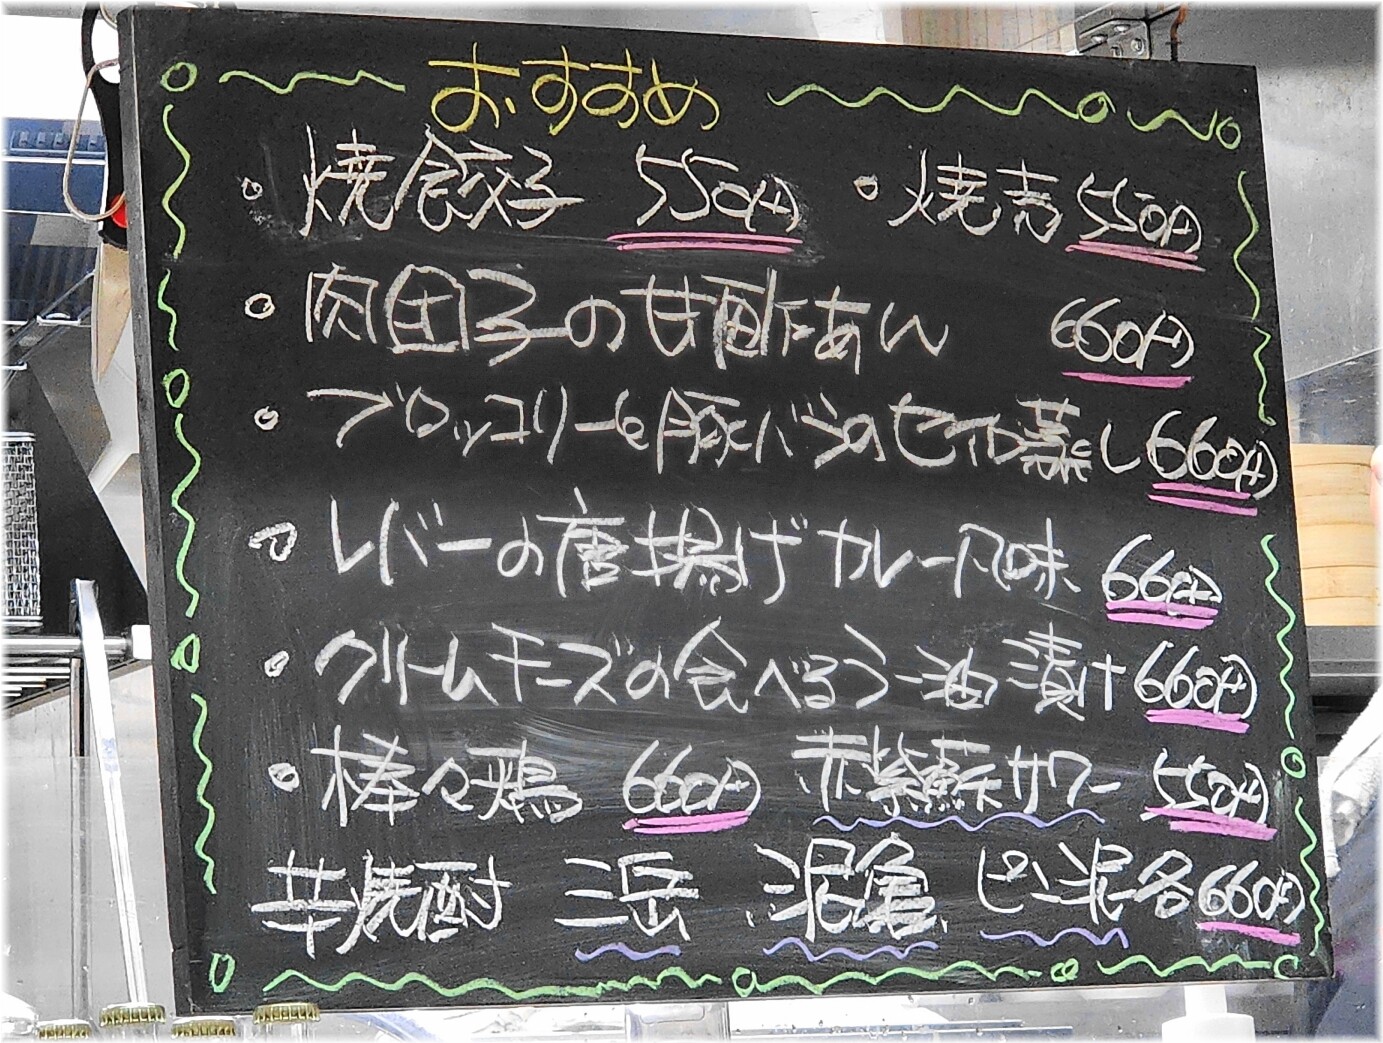 おすすめ
・焼餃子 550円 ・焼売 550円
・肉団子の甘酢あん 660円
・ブロッコリーと豚バラのセイロ蒸し 660円
・レバーの唐揚げ カレー風味 660円
・クリームチーズの食べるラー油漬け 660円
・棒々鶏 660円 赤紫蘇サワー 550円
芋焼酎 三岳 泥亀 ピン 各660円